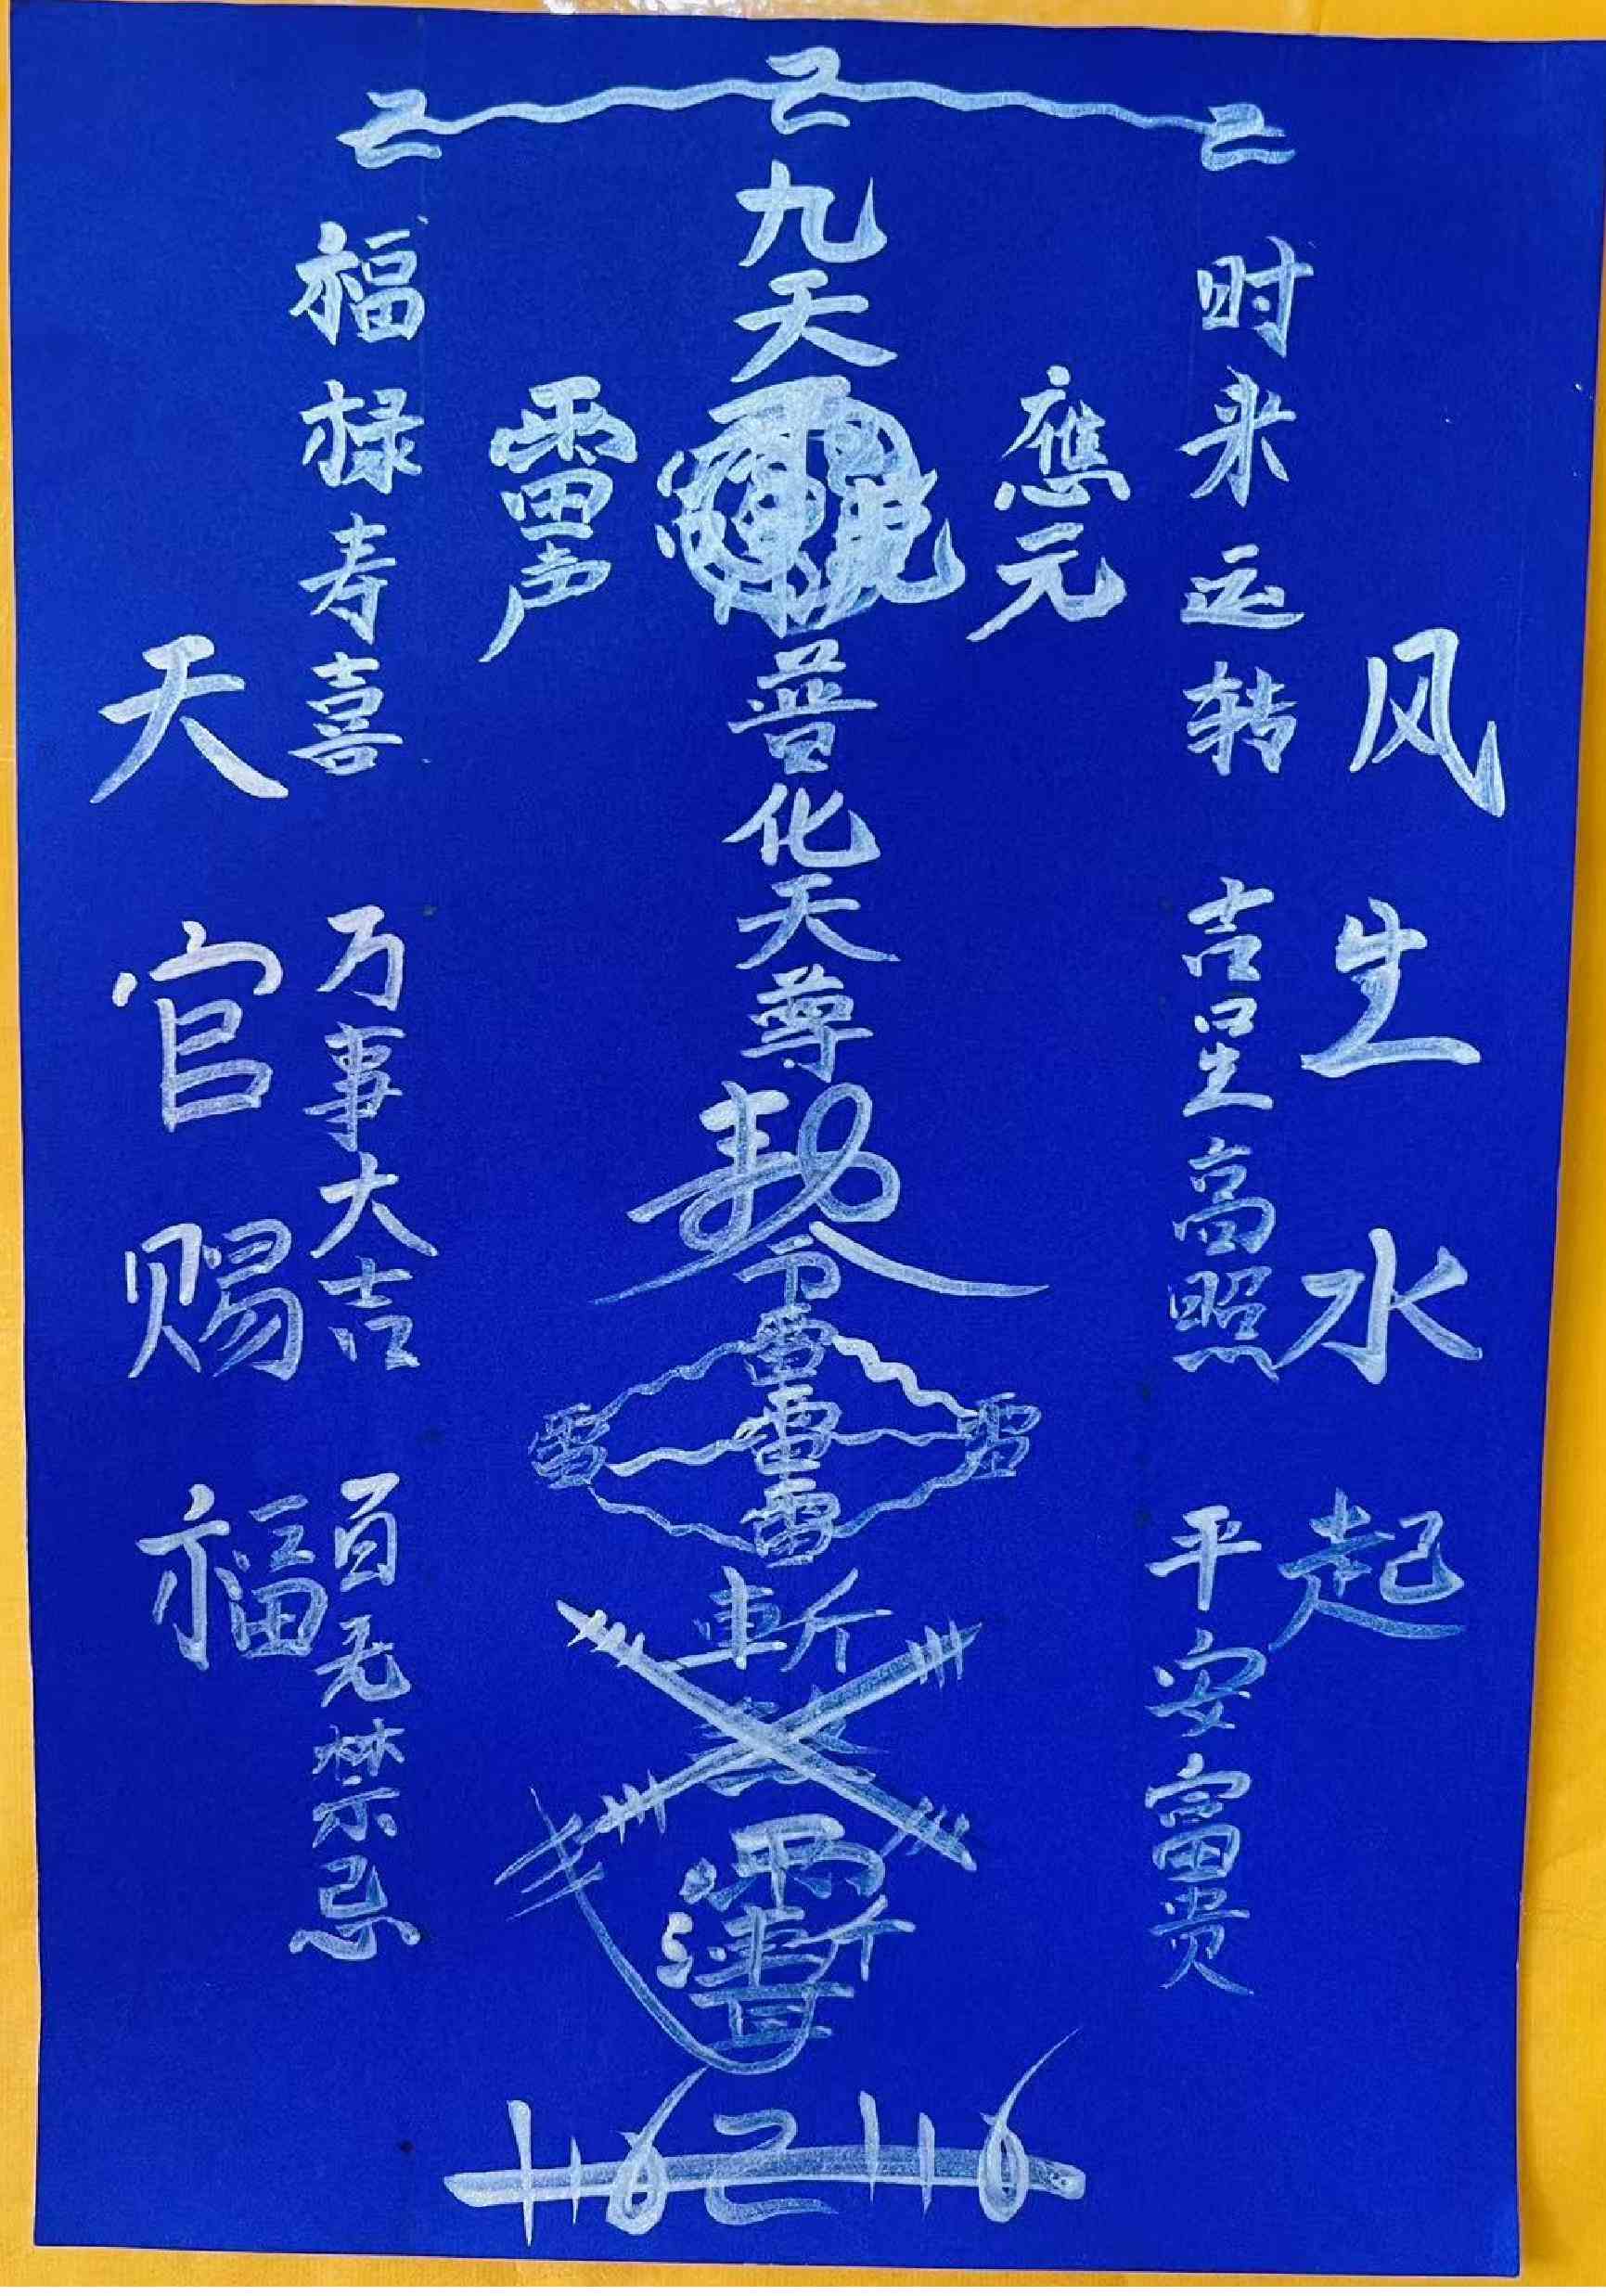 风生水起
时来运转
吉星高照
平安富贵
應元
九天
普化天尊
敕令
雷
雷 雷 雷
雷
斬
雷声
福禄寿喜
万事大吉
百无禁忌
天官赐福